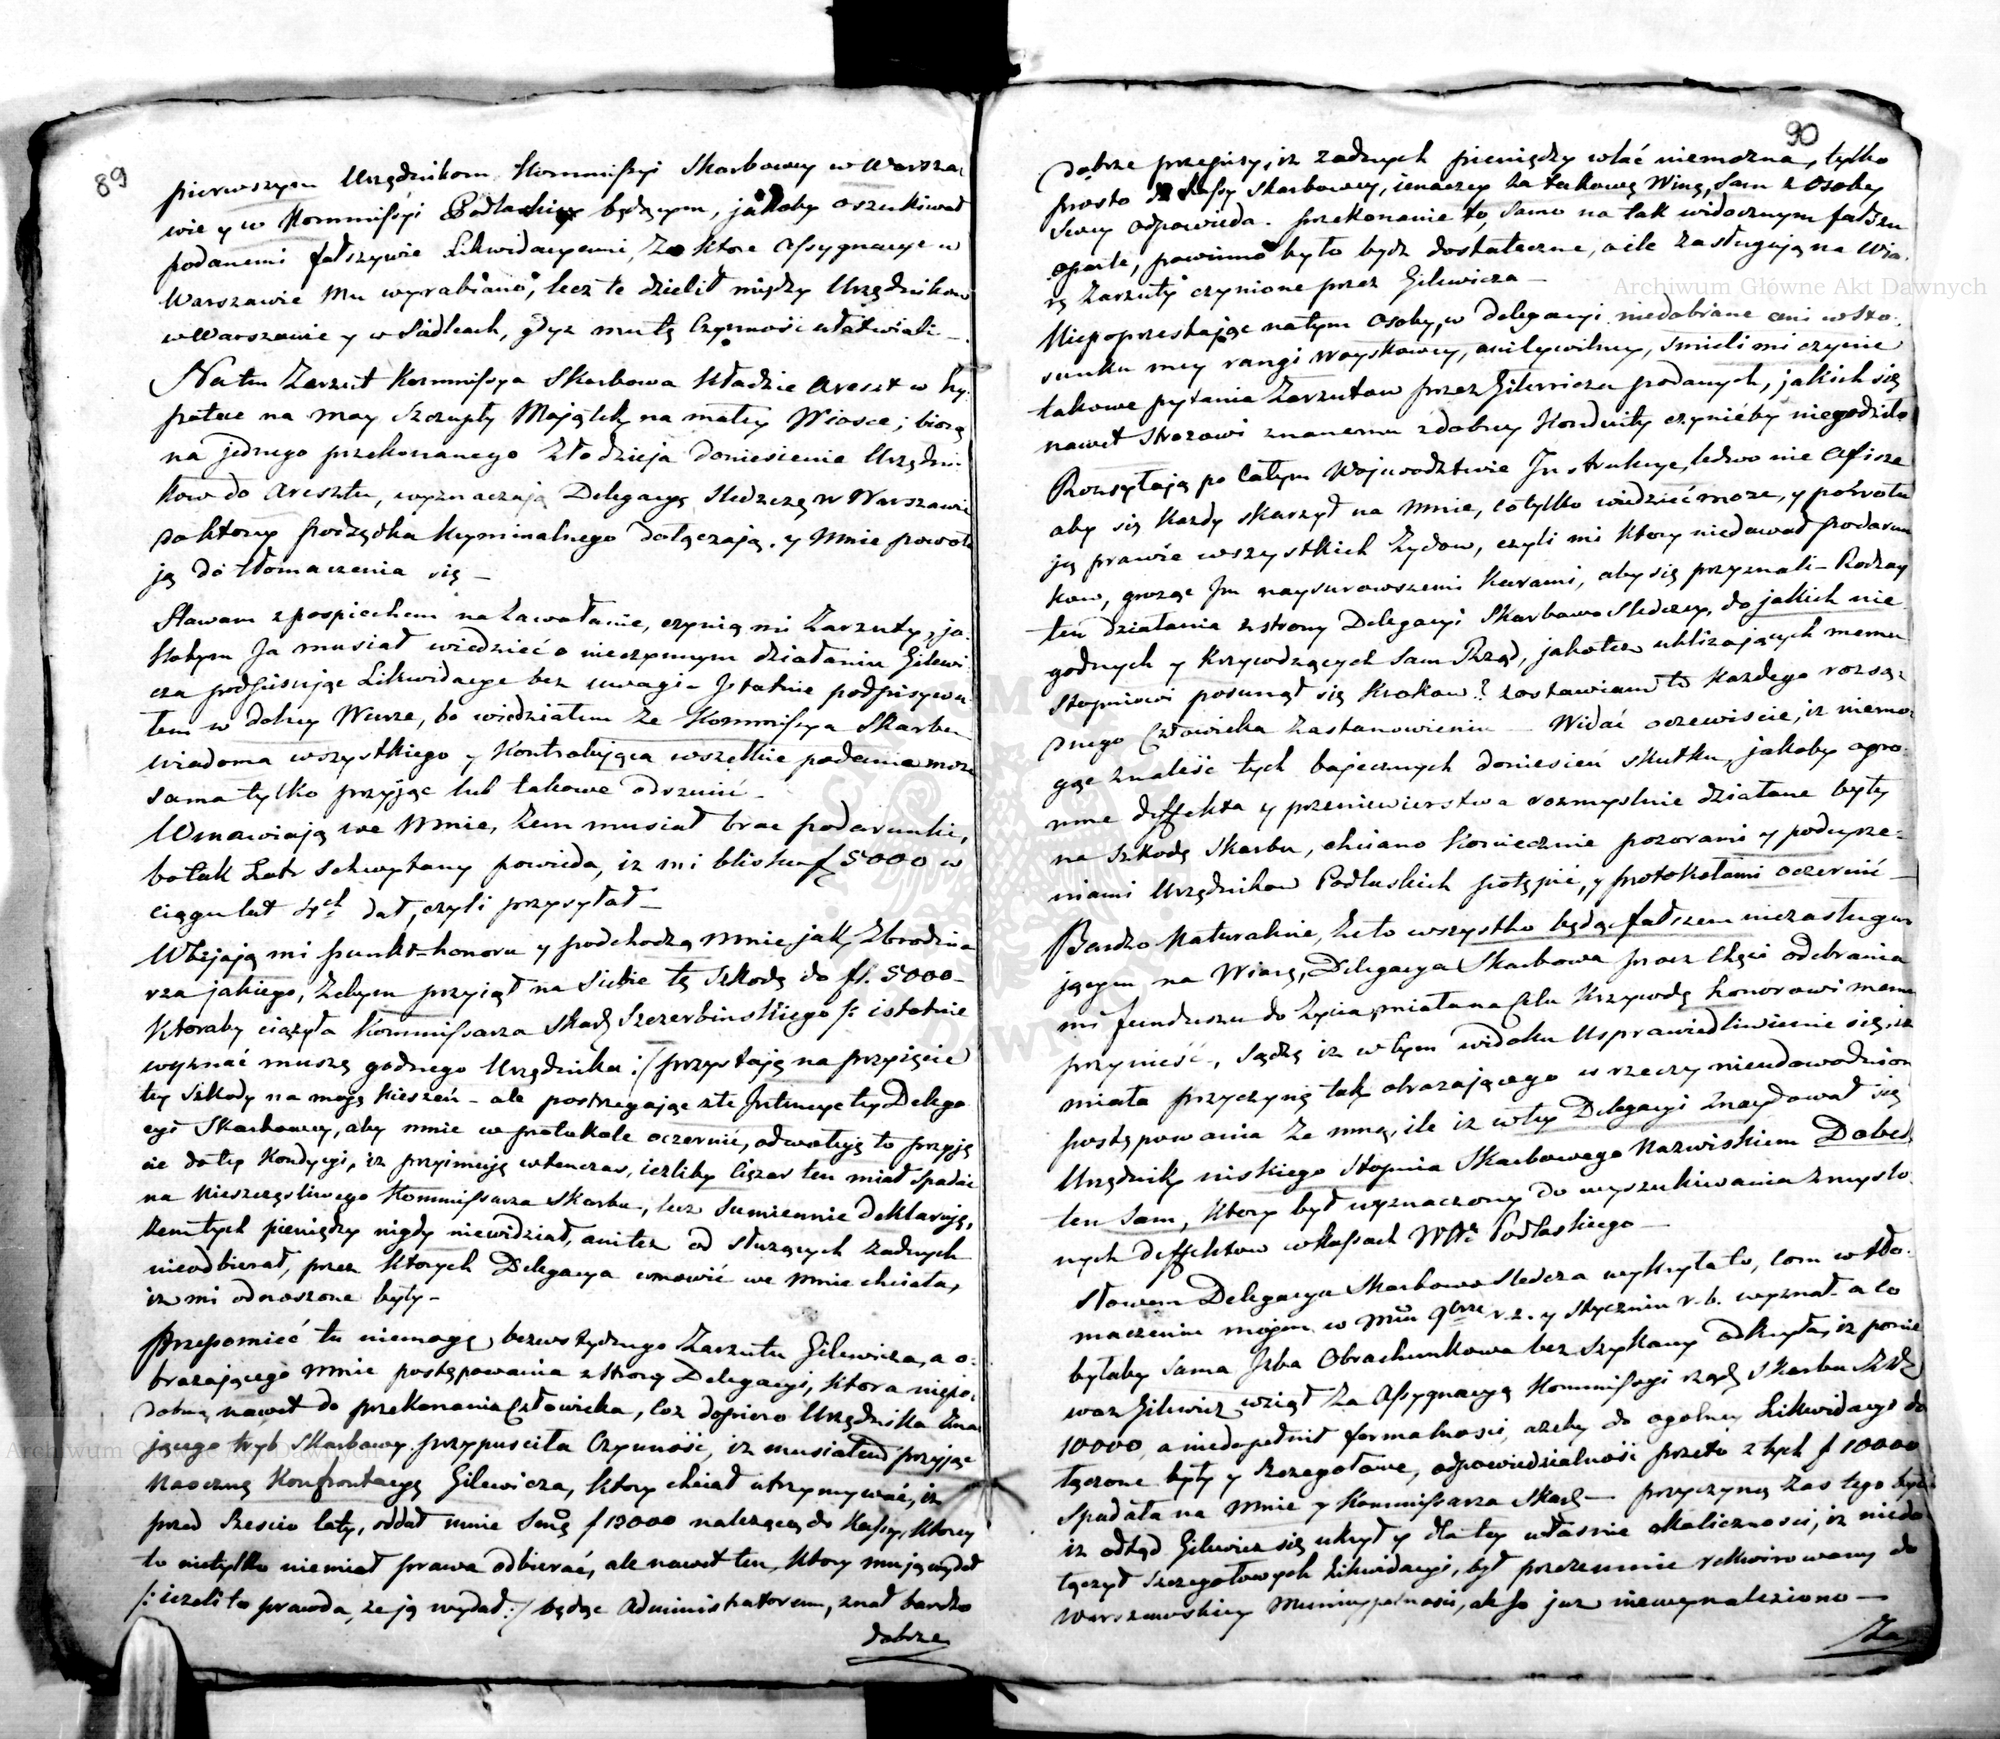 89
pierwszym Urzędnikom Kommissyi Skarbowey w Warsza-
wie y w Kommissyi Podlaskiey będącym, jakoby oszukiwał
podanemi fałszywie Likwidacyami, za ktore assygnacye w
Warszawie mu wyrabiano, lecz te dzielił między Urzędnikow
w Warszawie y w Siedlcach, gdyż mu tę Czynność ułatwiali –
Na ten Zarzut Kommissya Skarbowa Kładzie Areszt w hy-
potece na moy Szczupły Majątek na małey Wiosce; biorą
na jednego przekonanego Złodzieja doniesienie Urzędni-
kow do Aresztu, wyznaczają Delegacyą Sledczą w Warszawie
do ktorey porządku kryminalnego dołączają, y mnie powołu
ją do tłomaczenia się –
Stawam z pospiechem na zawołanie, czynią mi Zarzuty, ja-
kobym Ja musiał wiedzieć o nieczynnym działaniu Gilewi
cza podpisując Likwidacye bez uwagi – Istotnie podpisywa-
łem w dobrey Wierze, bo wiedziałem że Kommissya Skarbu
wiadoma wszystkiego y Kontrolująca wszelkie podania może
sama tylko przyjąć lub takowe odrzucić –
Wmawiają we Mnie, Żem musiał brać podarunki,
bo tak Łotr schwytany powiada, iż mi blisko f 5000 w
ciągu lat 4ch dał, czyli przysyłał –
Wbijają mi punkt-honoru y podchodzą mnie jak Zbrodnia
rza jakiego, Żebym przyiął na siebie tę szkodę do fl. 5000 –
Ktoraby ciążyła Kommissarza Skarb. Szczerbinskiego /: istotnie
wyznać muszę godnego Urzędnika :/ przystają na przyięcie
tey szkody na moją kieszeń – ale postrzegając złe Intencye tey Delega
cyi Skarbowey, aby mnie w protokole oczernić, odwołuję to przyję
cie do tey Kondycyi, iż przyimuję wtenczas, ieżliby Ciężar ten miał spadać
na Nieszczęśliwego Kommissarza Skarbu, lecz Sumiennie deklaruję,
żem tych pieniędzy nigdy niewidział, ani też od służących żadnych
nieodbierał, przez ktorych Delegacya wmowić we mnie chciała,
iż mi odnoszone były –
Przepomnieć tu niemogę, bezwstydnego Zarzutu Gilewicza, a o-
brażającego Mnie postępowania z strony Delegacyi, ktora niepo-
dobną nawet do przekonania Człowieka, coż dopiero Urzędnika zna
jącego tryb Skarbowy przypuściła Czynność, iż musiałem przyjąć
Naoczną Konfrontacyą Gilewicza, ktory chciał utrzymywać, iż
przed sześcio laty, oddał mnie Sumę f 12000 należącą do Kassy, ktorey
to nietylko niemiał prawa odbierać, ale nawet ten, ktory mu ją wydał
/: ieżeli to prawda, że ją wydał :/ będąc Administratorem, znał bardzo
dobrze
90
dobrze przepisy, iż żadnych pieniędzy wlać niemożna, tylko
prosto z Kassy Skarbowey, inaczey za takową Winę, sam z Osoby
swey odpowiada. Przekonanie to, samo na tak widocznym fałszu
oparte, powinno było bydź dostateczne, o ile zasługują na Wia-
rę Zarzuty czynione przez Gilewicza –
Niepoprzestając na tym Osoby, w Delegacyi niedobrane ani w sto-
sunku mey rangi Woyskowey, ani cywilney, śmieli mi czynić
takowe pytania Zarzutow przez Gilewicza podanych, jakich się
nawet Strożowi znanemu z dobrey Konduity czynićby niegodziło
Rozsyłają po Całym Wojewodztwie Instrukcye, ledwo nie Afisze
aby się Każdy skarżył na Mnie, co tylko wiedzieć może, y powołu
ją prawie wszystkich Żydow, czyli mi Ktory niedawał podarun
kow, grożąc Im naysurowszemi Karami, aby się przyznali – Rodzay
ten działania z strony Delegacyi Skarbowo Sledczey, do jakich nie-
godnych y krzywdzących sam Rząd, jakoteż ubliżających memu
Stopniowi posunął się Krokow? zostawiam to Każdego rozsą-
dnego Człowieka zastanowieniu – Widać oczewiscie, iż niemo-
gąc znaleść tych bajecznych doniesień skutku, jakoby ogro-
mne deffekta y przeniewierstwa rozmyslnie działane były
na szkodę Skarbu, chciano Koniecznie pozorami y podeyrze-
niami Urzędnikow Podlaskich potępić, y protokołami oczernić –
Bardzo Naturalnie, że to wszystko będąc fałszem niezasługu-
jącym na Wiarę, Delegacya Skarbowa przez Chęć odebrania
mi funduszu do Życia, miała na Celu Krzywdę honorowi memu
przynieść, sądzę iż w tym widoku Usprawiedliwienie się, iż
miała przyczynę tak obrażającego w rzeczy nieudowodnion
postępowania ze mną, ile iż w tey Delegacyi znaydował się
Urzędnik niskiego Stopnia Skarbowego Nazwiskiem Dobeck
ten sam, ktory był wyznaczony do wyszukiwania zmyslo-
nych deffektow w kassach Wdź. Podlaskiego –
Słowem Delegacya Skarbowo Sledcza wykryła to, com w tło-
maczeniu mojem w Mcu 9brze r. z. y Styczniu r. b. wyznał – a co
byłaby sama Izba Obrachunkowa bez szykany odkryła, iż ponie
waż Gilewicz wziął za Assygnacyą Kommissyi rząd. Skarbu
10000, a niedopełnił formalnosci, ażeby do ogolney Likwidacyi do
łączone były y szczegołowe, odpowiedzialność przeto z tych f 10000
spadała na mnie y Kommissarza Skarb. – przyczyną zas tego było
iż odtąd Gilewicz się ukrył y dla tey właśnie okoliczności, iż niedo
łączył szczegołowych Likwidacyi, był przezemnie rekwirowany do
Warszawskiey Municypalnosci, ale Go już niewynaleziono –
Za
Archiwum Główne Akt Dawnych
Archiwum Główne Akt Dawnych